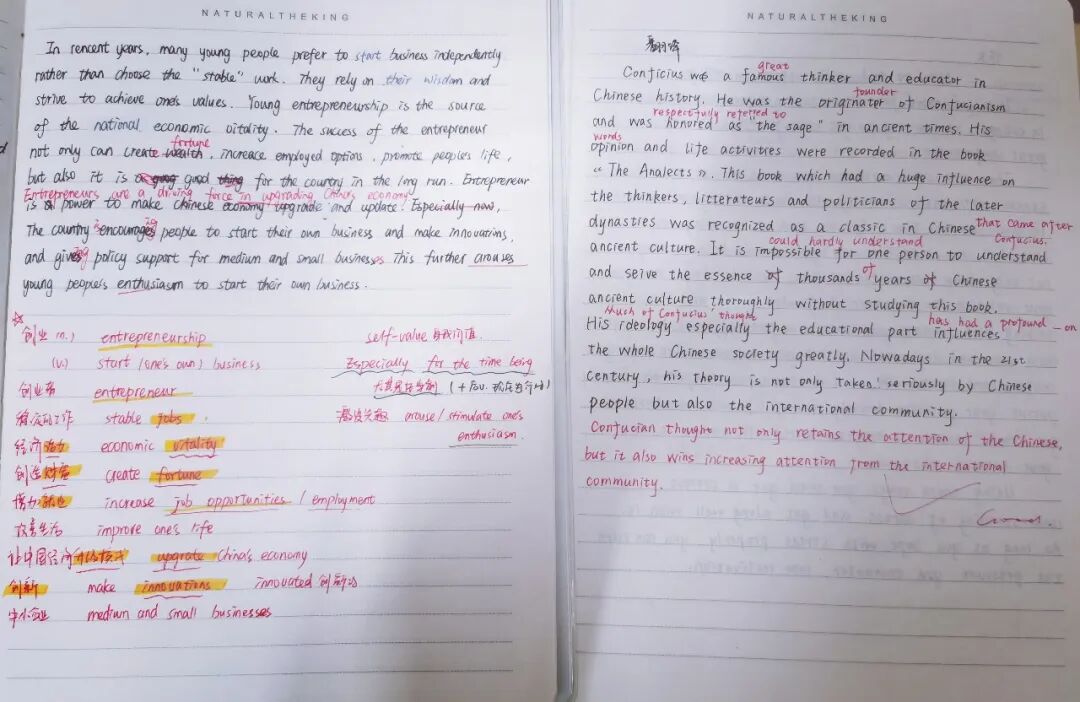 NATURALTHEKING
In rencent years, many young people prefer to start business independently
rather than choose the "stable" work. They rely on their wisdom and
strive to achieve one's values. Young entrepreneurship is the source
of the national economic vitality. The success of the entrepreneur
fortune
not only can create wealth, increase employed options, promote people's life,
but also it is good thing for the country in the long run. Entrepreneur
Entrepreneurs are a driving force in upgrading China's economy
is power to make Chinese economy upgrade and update. Especially now,
The country is encouraging people to start their own business and make innovations,
and giving policy support for medium and small businesses This further arouses
young people's enthusiasm to start their own business.
创业 (n.) entrepreneurship self-value 自我价值
(v.) start (one's own) business Especially for the time being
创业者 entrepreneur 尤其是在当前
稳定的工作 stable jobs. 激发兴趣 arouse/stimulate one's
enthusiasm.
经济活力 economic vitality
创造财富 create fortune
增加就业 increase job opportunities / employment
改善生活 improve one's life
让中国经济升级换代 upgrate China's economy
创新 make innovations innovated 创新的
中小企业 medium and small businesses
NATURALTHEKING
翻译
great
Conficius was a famous thinker and educator in
founder
Chinese history. He was the originater of Confucianism
respectfully referred to
and was honored as "the sage" in ancient times. His
words
opinion and life activities were recorded in the book
« The Analects ». This book which had a huge influence on
the thinkers, litterateurs and politicians of the later
dynasties was recognized as a classic in Chinese that came after
Confucius.
could hardly understand
ancient culture. It is impossible for one person to understand
and seive the essence of thousands of years of Chinese
ancient culture thoroughly without studying this book.
Much of Confucius' thought has had a profound on
His ideology especially the educational part influences
the whole Chinese society greatly. Nowadays in the 21st
century, his theory is not only taken seriously by Chinese
people but also the international community.
Confucian thought not only retains the attention of the Chinese,
but it also wins increasing attention from the international
community.
Good.